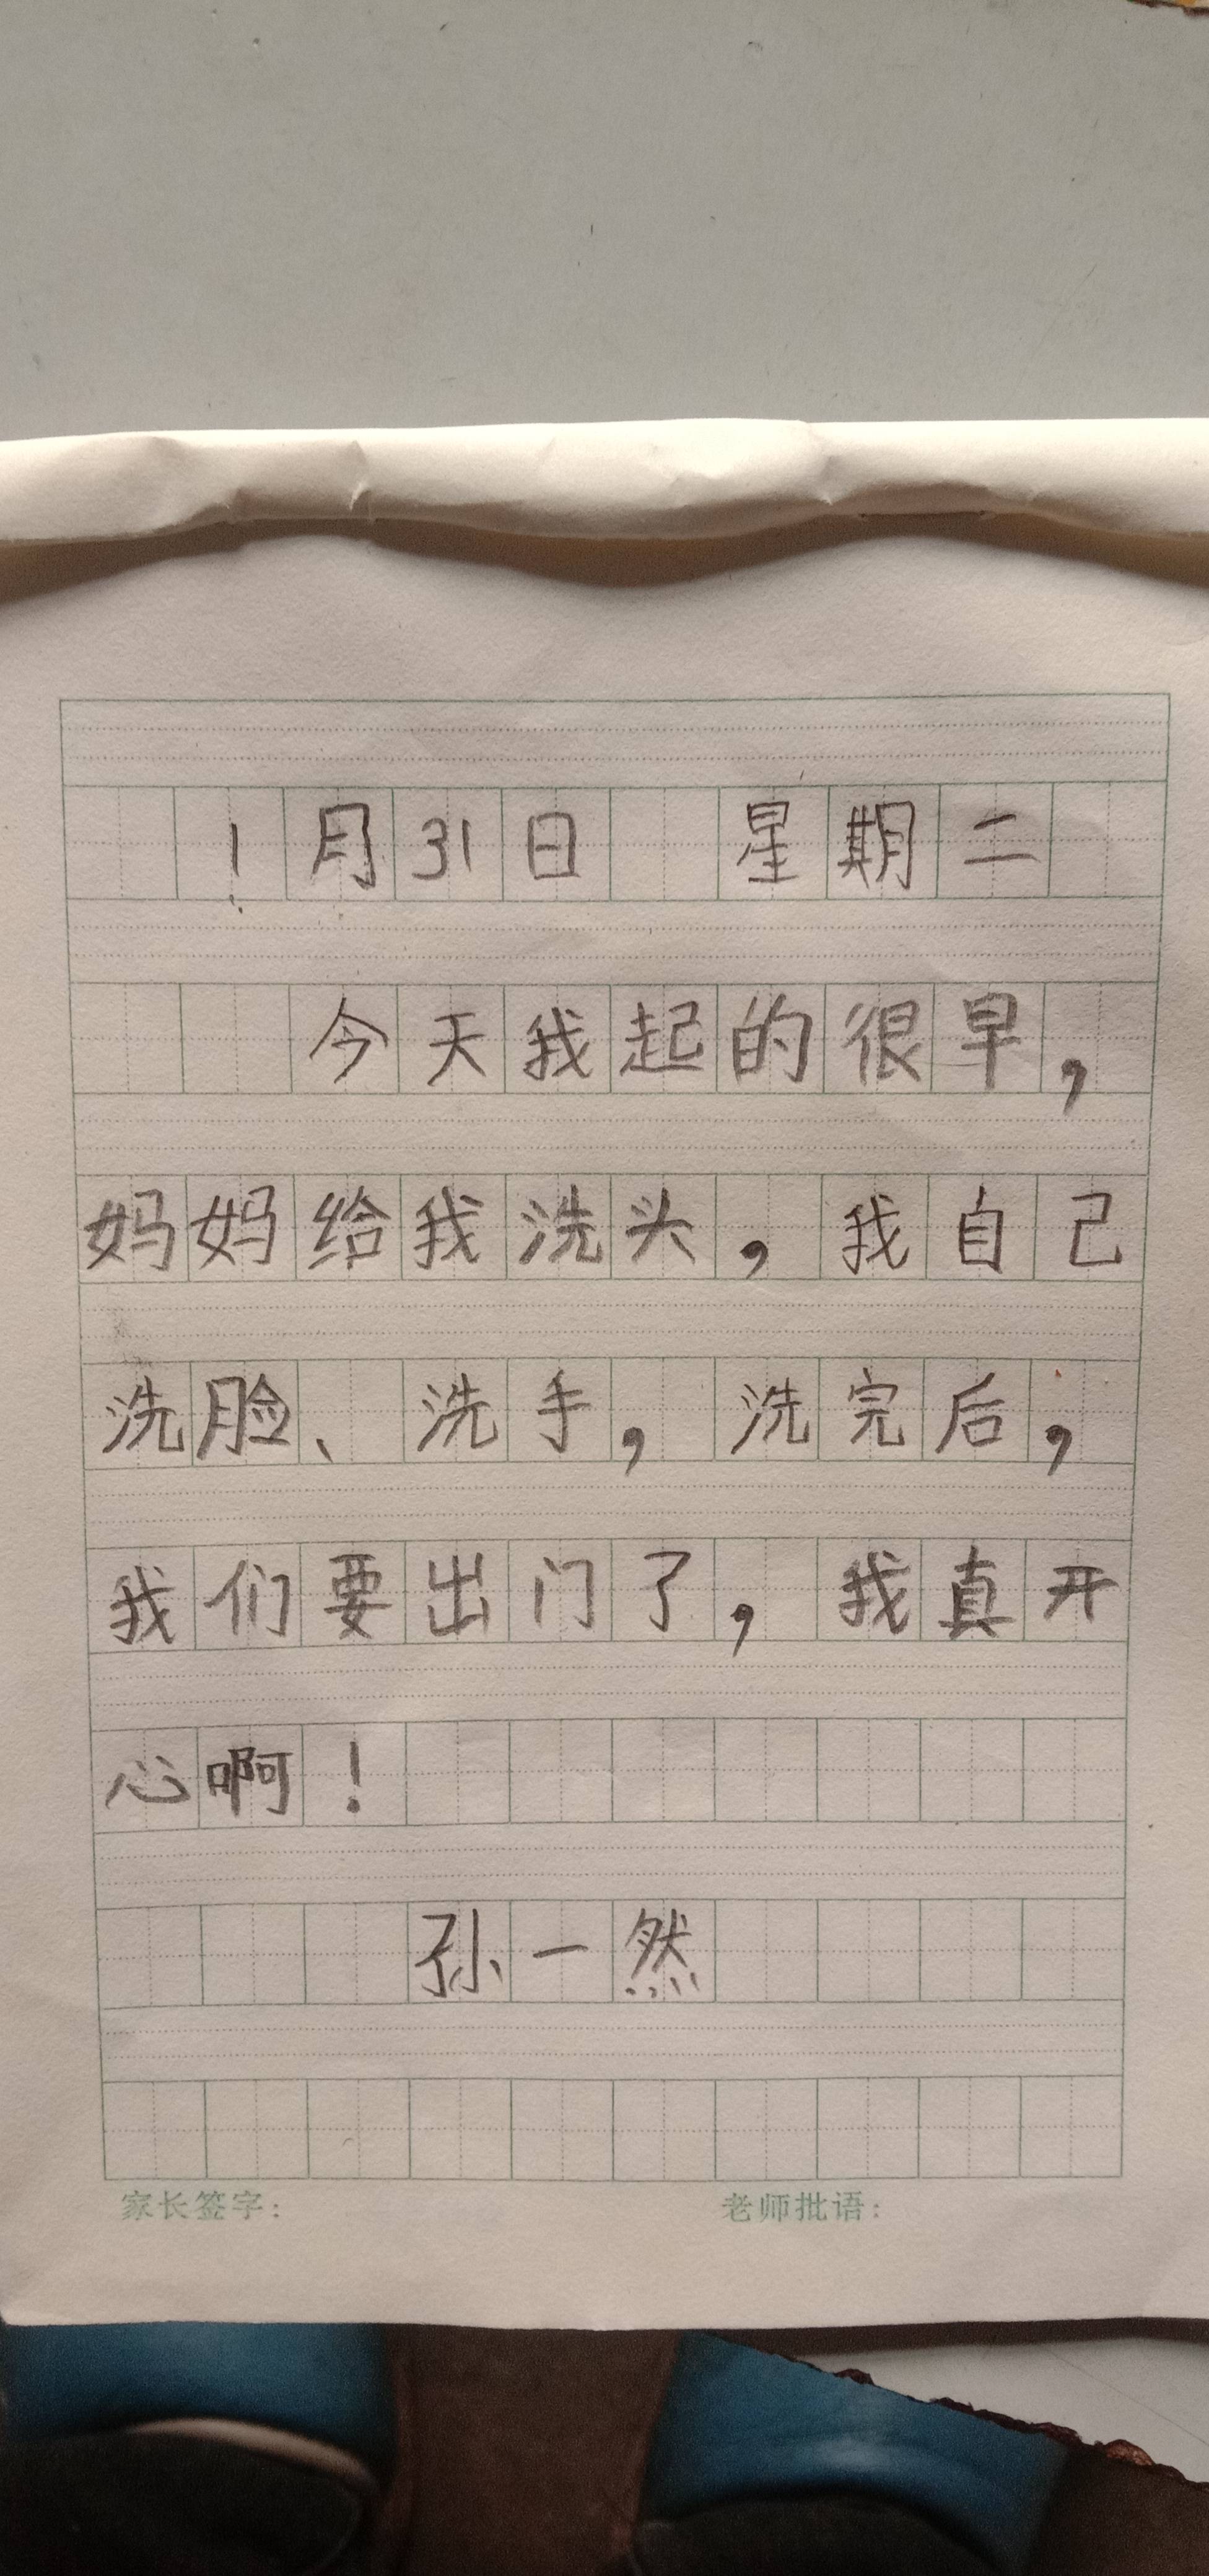 1月31日 星期二
今天我起的很早，
妈妈给我洗头，我自己
洗脸、洗手，洗完后，
我们要出门了，我真开
心啊！
孙一然
家长签字： 老师批语：